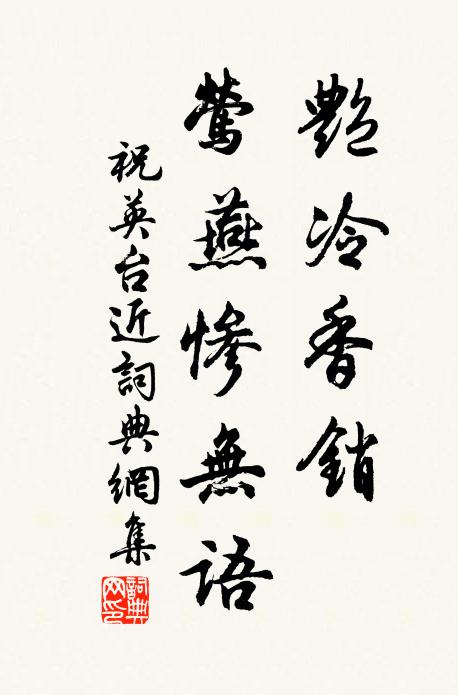 艷冷香銷
鶯燕慘無語
祝英台近詞典網集
詞典网印